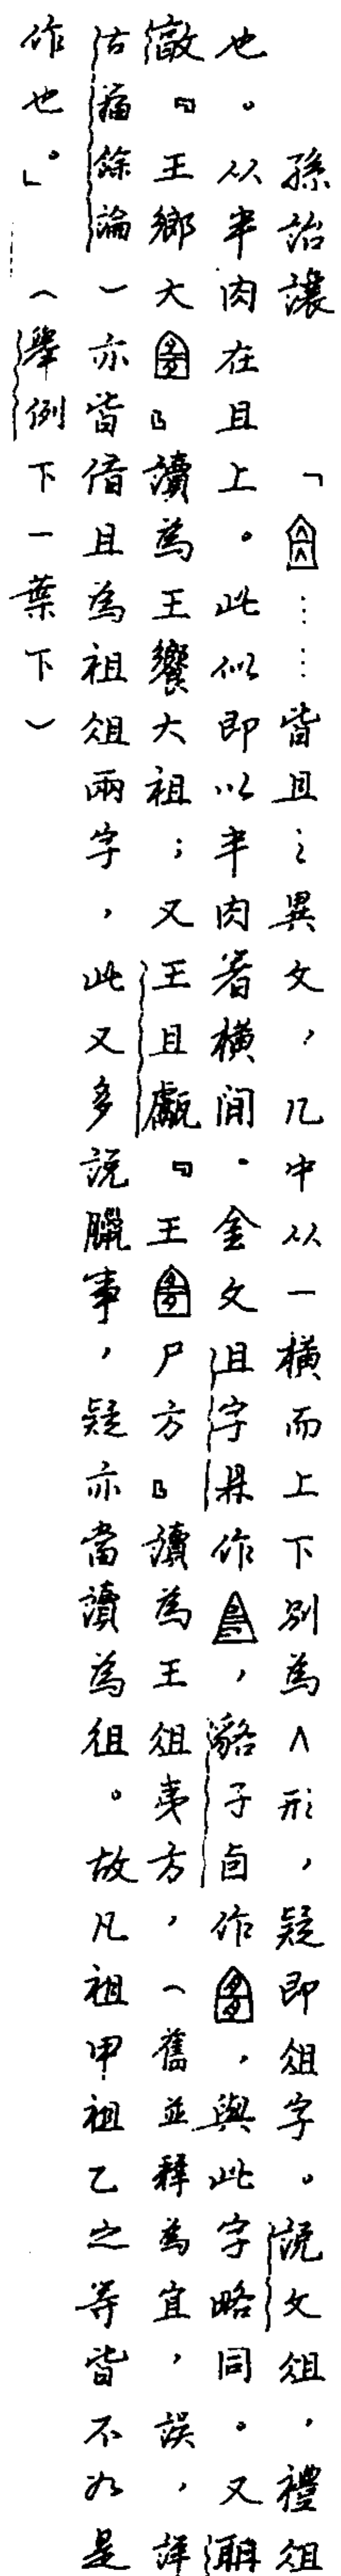 孫詒讓　「……皆且之異文，几中从一橫而上下別為∧形，疑即俎字。說文俎，禮俎
也。从半肉在且上。此似即以半肉着橫间。金文且字鼎作，貉子卣作，與此字略同。又
𣪘『王鄉大』讀為王饗大祖；又王且甗『王尸方』讀為王俎夷方，（舊並釋為宜，誤，詳
古籀餘論）亦皆借且為祖俎兩字，此又多說臘事，疑亦當讀為徂。故凡祖甲祖乙之等皆不如是
作也。」（舉例下一葉下）